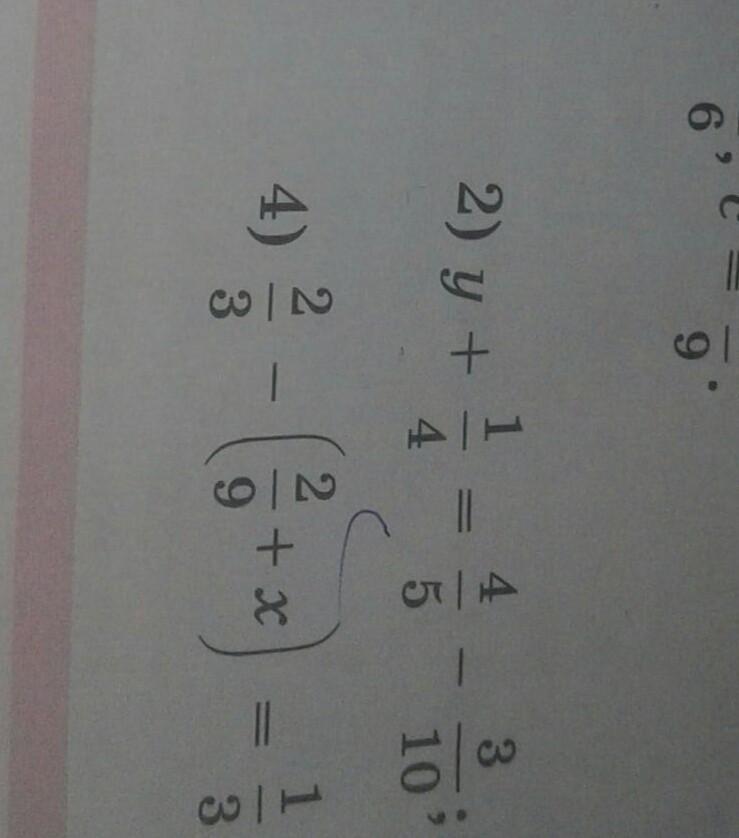 6, c = 9.
2) y + 1/4 = 4/5 − 3/10;
4) 2/3 − (2/9 + x) = 1/3